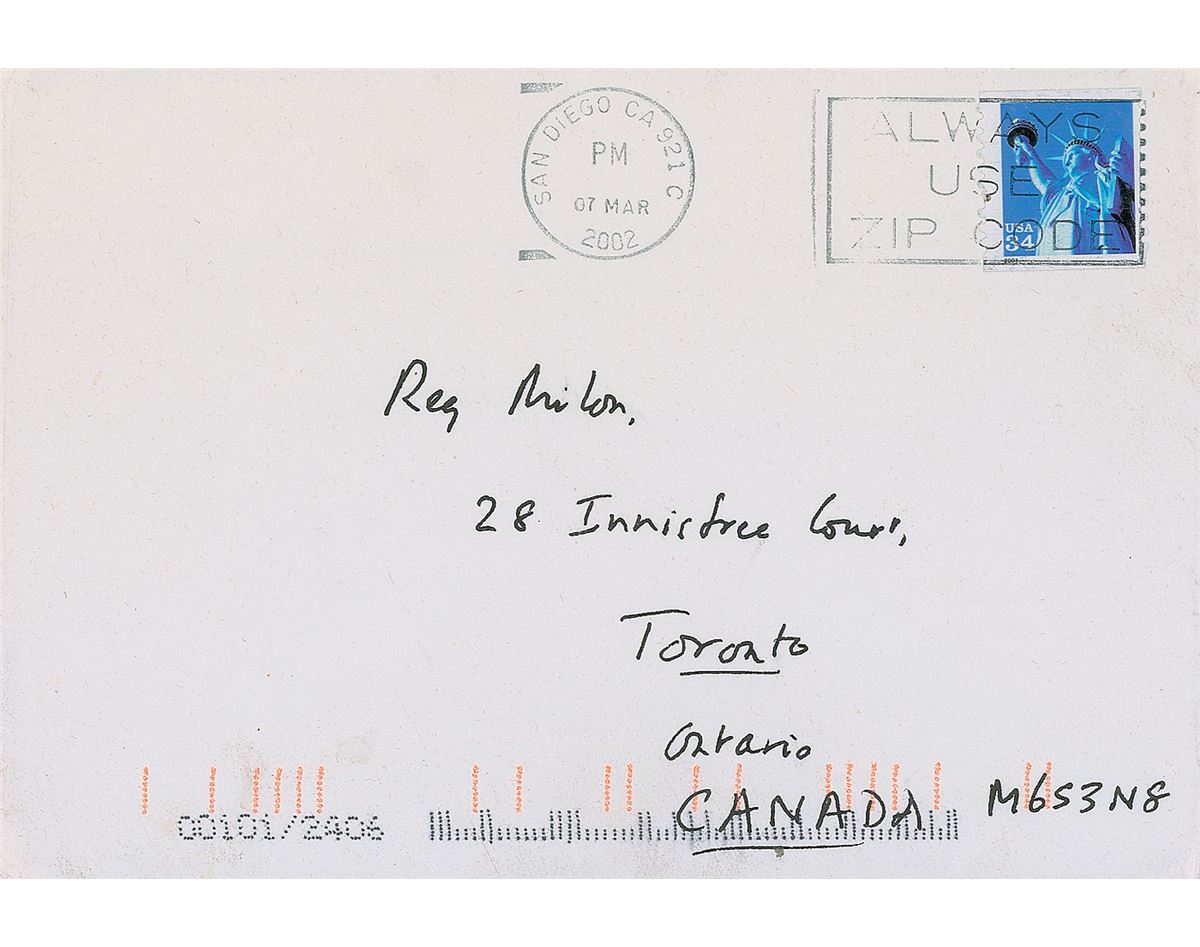 SAN DIEGO CA 921 C
PM
07 MAR
2002
ALWAYS
USE
ZIP CODE
USA
34
2001
Reg Milon,
28 Innistree Court,
Toronto
Ontario
CANADA M6S3N8
00101/2406